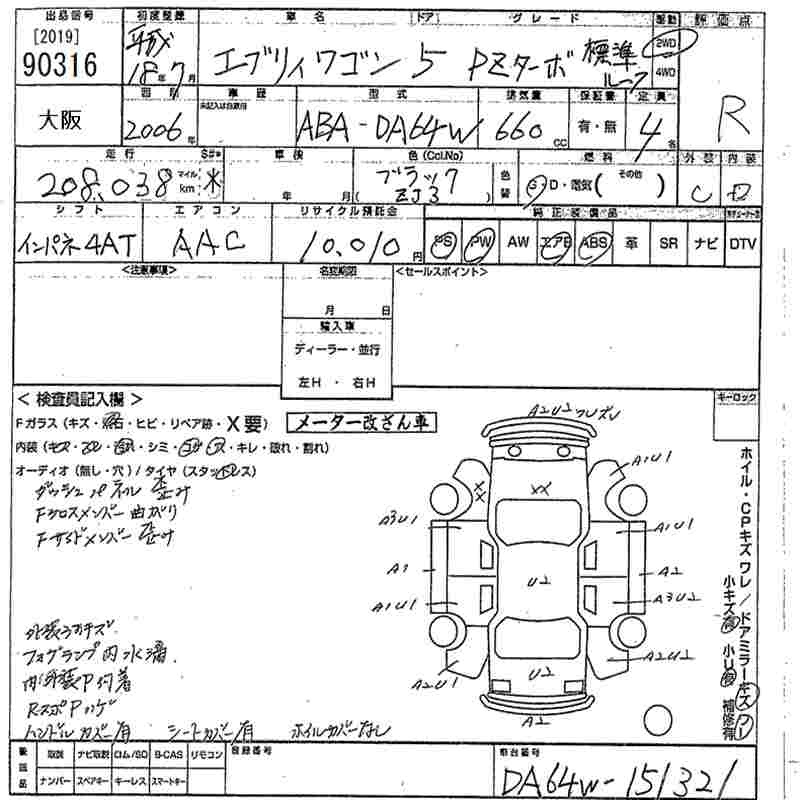 出品番号 初度登録 車名 ドア グレード 駆動 評価点
[2019] 90316 平成18年7月 エブリィワゴン 5 PZターボ 標準ルーフ 2WD 4WD R
大阪
車歴 型式 排気量 保証書 定員
2006年 未記入は自家用 ABA-DA64W 660cc 有・無 4名
走行 S#* 車検 色(Col.No) 燃料 外装 内装
208,038 マイル km * 年 月 ブラック ZJ3 色替 G・D・電気( その他 ) C D
シフト エアコン リサイクル預託金 純正装備品
インパネ4AT AAC 10,010円 PS PW AW エアB ABS 革 SR ナビ DTV
<注意事項> 名変期限 <セールスポイント>
月 日
輸入車
ディーラー・並行
左H ・ 右H
< 検査員記入欄 > キーロック
Fガラス (キズ・飛石・ヒビ・リペア跡・X要) メーター改ざん車
内装 (キズ・スレ・汚れ・シミ・コゲ・穴・キレ・破れ・割れ)
オーディオ (無し・穴) / タイヤ (スタッドレス)
ダッシュパネル 歪み
Fクロスメンバー 曲がり
Fサイドメンバー 歪み
A2U2 ワレズレ
XX XX A1U1
A3U1 A1U1
A1 U2 A2
A1U1 A3U2
A2U1 U2 A2U2
A2
ホイル・CPキズワレ/ドアミラーキズワレ
小キズ有 小U有 補修有
外装うすキズ
フォグランプ内水滴
内外装P付着
RスポPハゲ
ハンドルカバー有 シートカバー有 ホイルカバーなし
後送品 取説 ナビ取説 ロム/SD B-CAS リモコン 登録番号 車台番号
ナンバー スペアキー キーレス スマートキー DA64W-151321